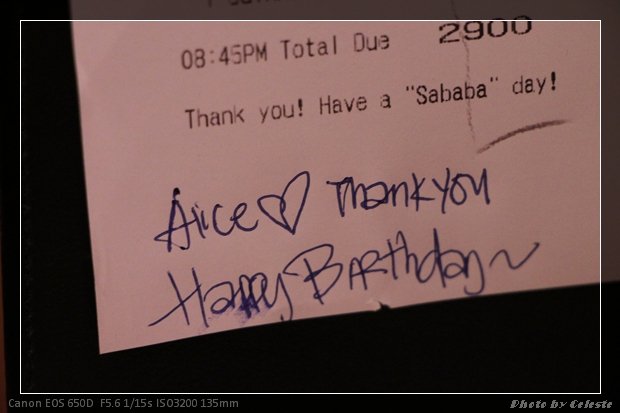 08:45PM Total Due 2900
Thank you! Have a "Sababa" day!
Alice♡ Thank you
Happy BARthday~
Canon EOS 650D F5.6 1/15s ISO3200 135mm
Photo by Celeste